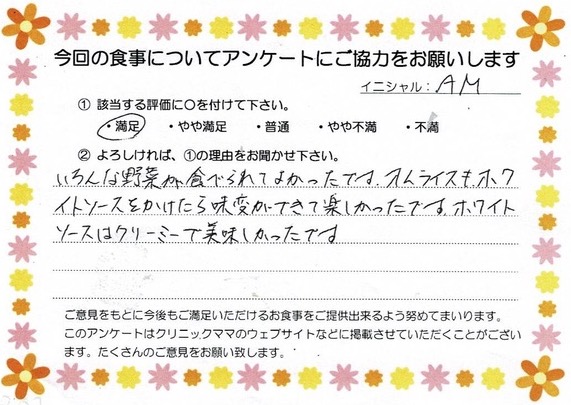 今回の食事についてアンケートにご協力をお願いします
イニシャル：AM
① 該当する評価に○を付けて下さい。
・満足 ・やや満足 ・普通 ・やや不満 ・不満
② よろしければ、①の理由をお聞かせ下さい。
いろんな野菜が食べられてよかったです。オムライスも、ホワ
イトソースをかけたら味変ができて楽しかったです。ホワイト
ソースはクリーミーで美味しかったです
ご意見をもとに今後もご満足いただけるお食事をご提供出来るよう努めてまいります。
このアンケートはクリニックママのウェブサイトなどに掲載させていただくことがござい
ます。たくさんのご意見をお願い致します。